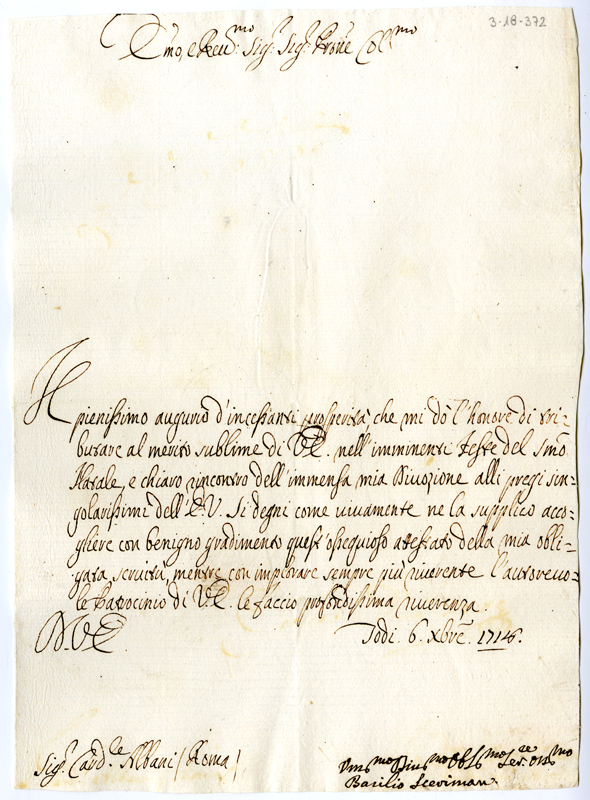 3-18-372
Emo, e Reu.mo Sig.r Sig.r Prone Col.mo
Il pienissimo augurio d'incessanti prosperità che mi dò l'honore di tri=
butare al merito sublime di V.E. nell'imminenti feste del Smo
Natale, e chiaro rincontro dell'immensa mia Divozione alli pregi sin=
golarissimi dell'E.V. Si degni come vivamente ne la supplico acco=
gliere con benigno gradimento quest'ossequioso attestato della mia obli=
gata servitù, mentre con implorare sempre più riverente l'autorevo=
le Patrocinio di V.E. le faccio profondissima riverenza.
D.V.E. Todi. 6. xbre. 1714.
Sig.r Card.le Albani / Roma /
Vm.mo Diu.mo Obl.mo Ser.re
Basilio Sceriman.